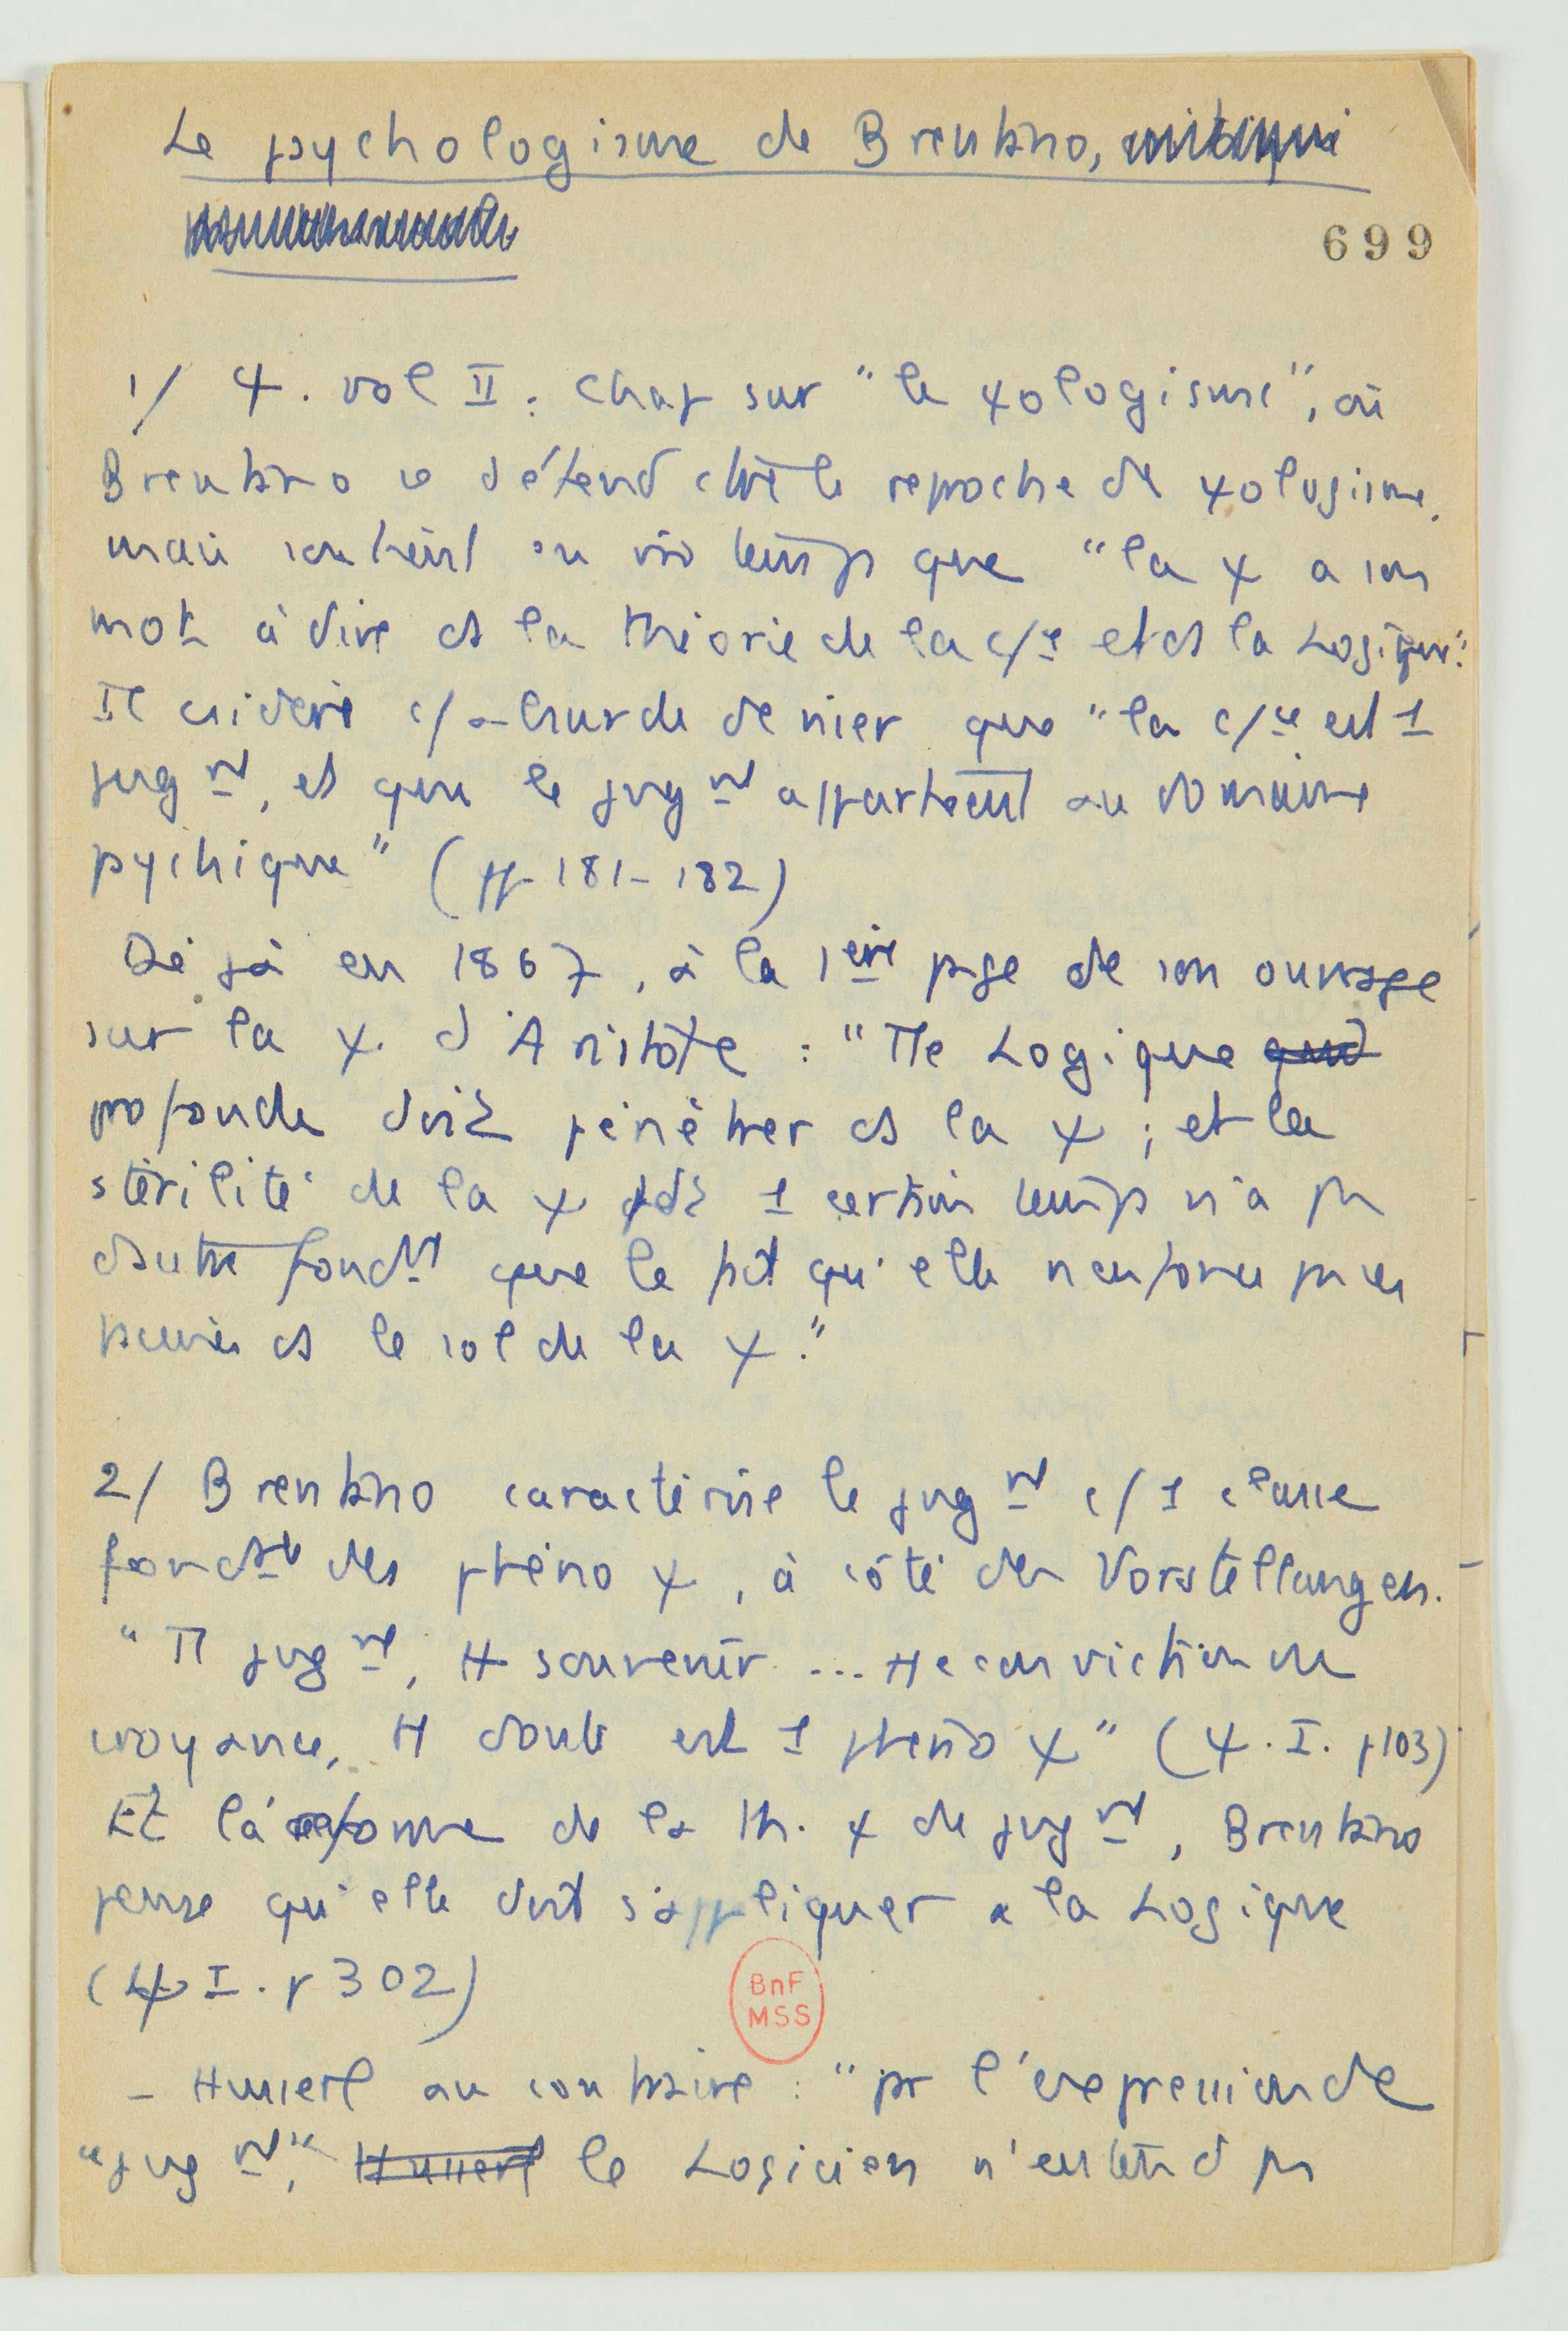 Le psychologisme de Brentano,
699
1/ Ψ. vol II : Chap sur "le Ψologisme", où
Brentano se défend ctre le reproche de Ψologisme,
mais soutient en m̂ temps que "la Ψ a son
mot à dire ds la théorie de la c/ce et ds la Logique".
Il csidère c/ absurde de nier que "la c/ce est 1
jugnt, et que le jugnt appartient au domaine
psychique" (pp 181-182)
Déjà en 1867, à la 1ère page de son ouvrage
sur la Ψ. d'Aristote : "Tte Logique
profonde doit pénétrer ds la Ψ ; et la
stérilité de la Ψ pdt 1 certain temps n'a pas
d'autre fondnt que le fait qu'elle n'enfonce pas ses
racines ds le sol de la Ψ."
2/ Brentano caractérise le jugnt c/ 1 classe
fondtale des phéno Ψ, à côté des Vorstellungen.
"Tt jugnt, tt souvenir ... tte conviction ou
croyance, tt doute est 1 phéno Ψ" (Ψ. I. p103)
Et la réforme de la th. Ψ de jugnt, Brentano
pense qu'elle doit s'appliquer à la Logique
(Ψ I. p 302)
BnF
MSS
- Husserl au contraire : "pr l'expression de
"jugnt", Husserl le Logicien n'entend pas